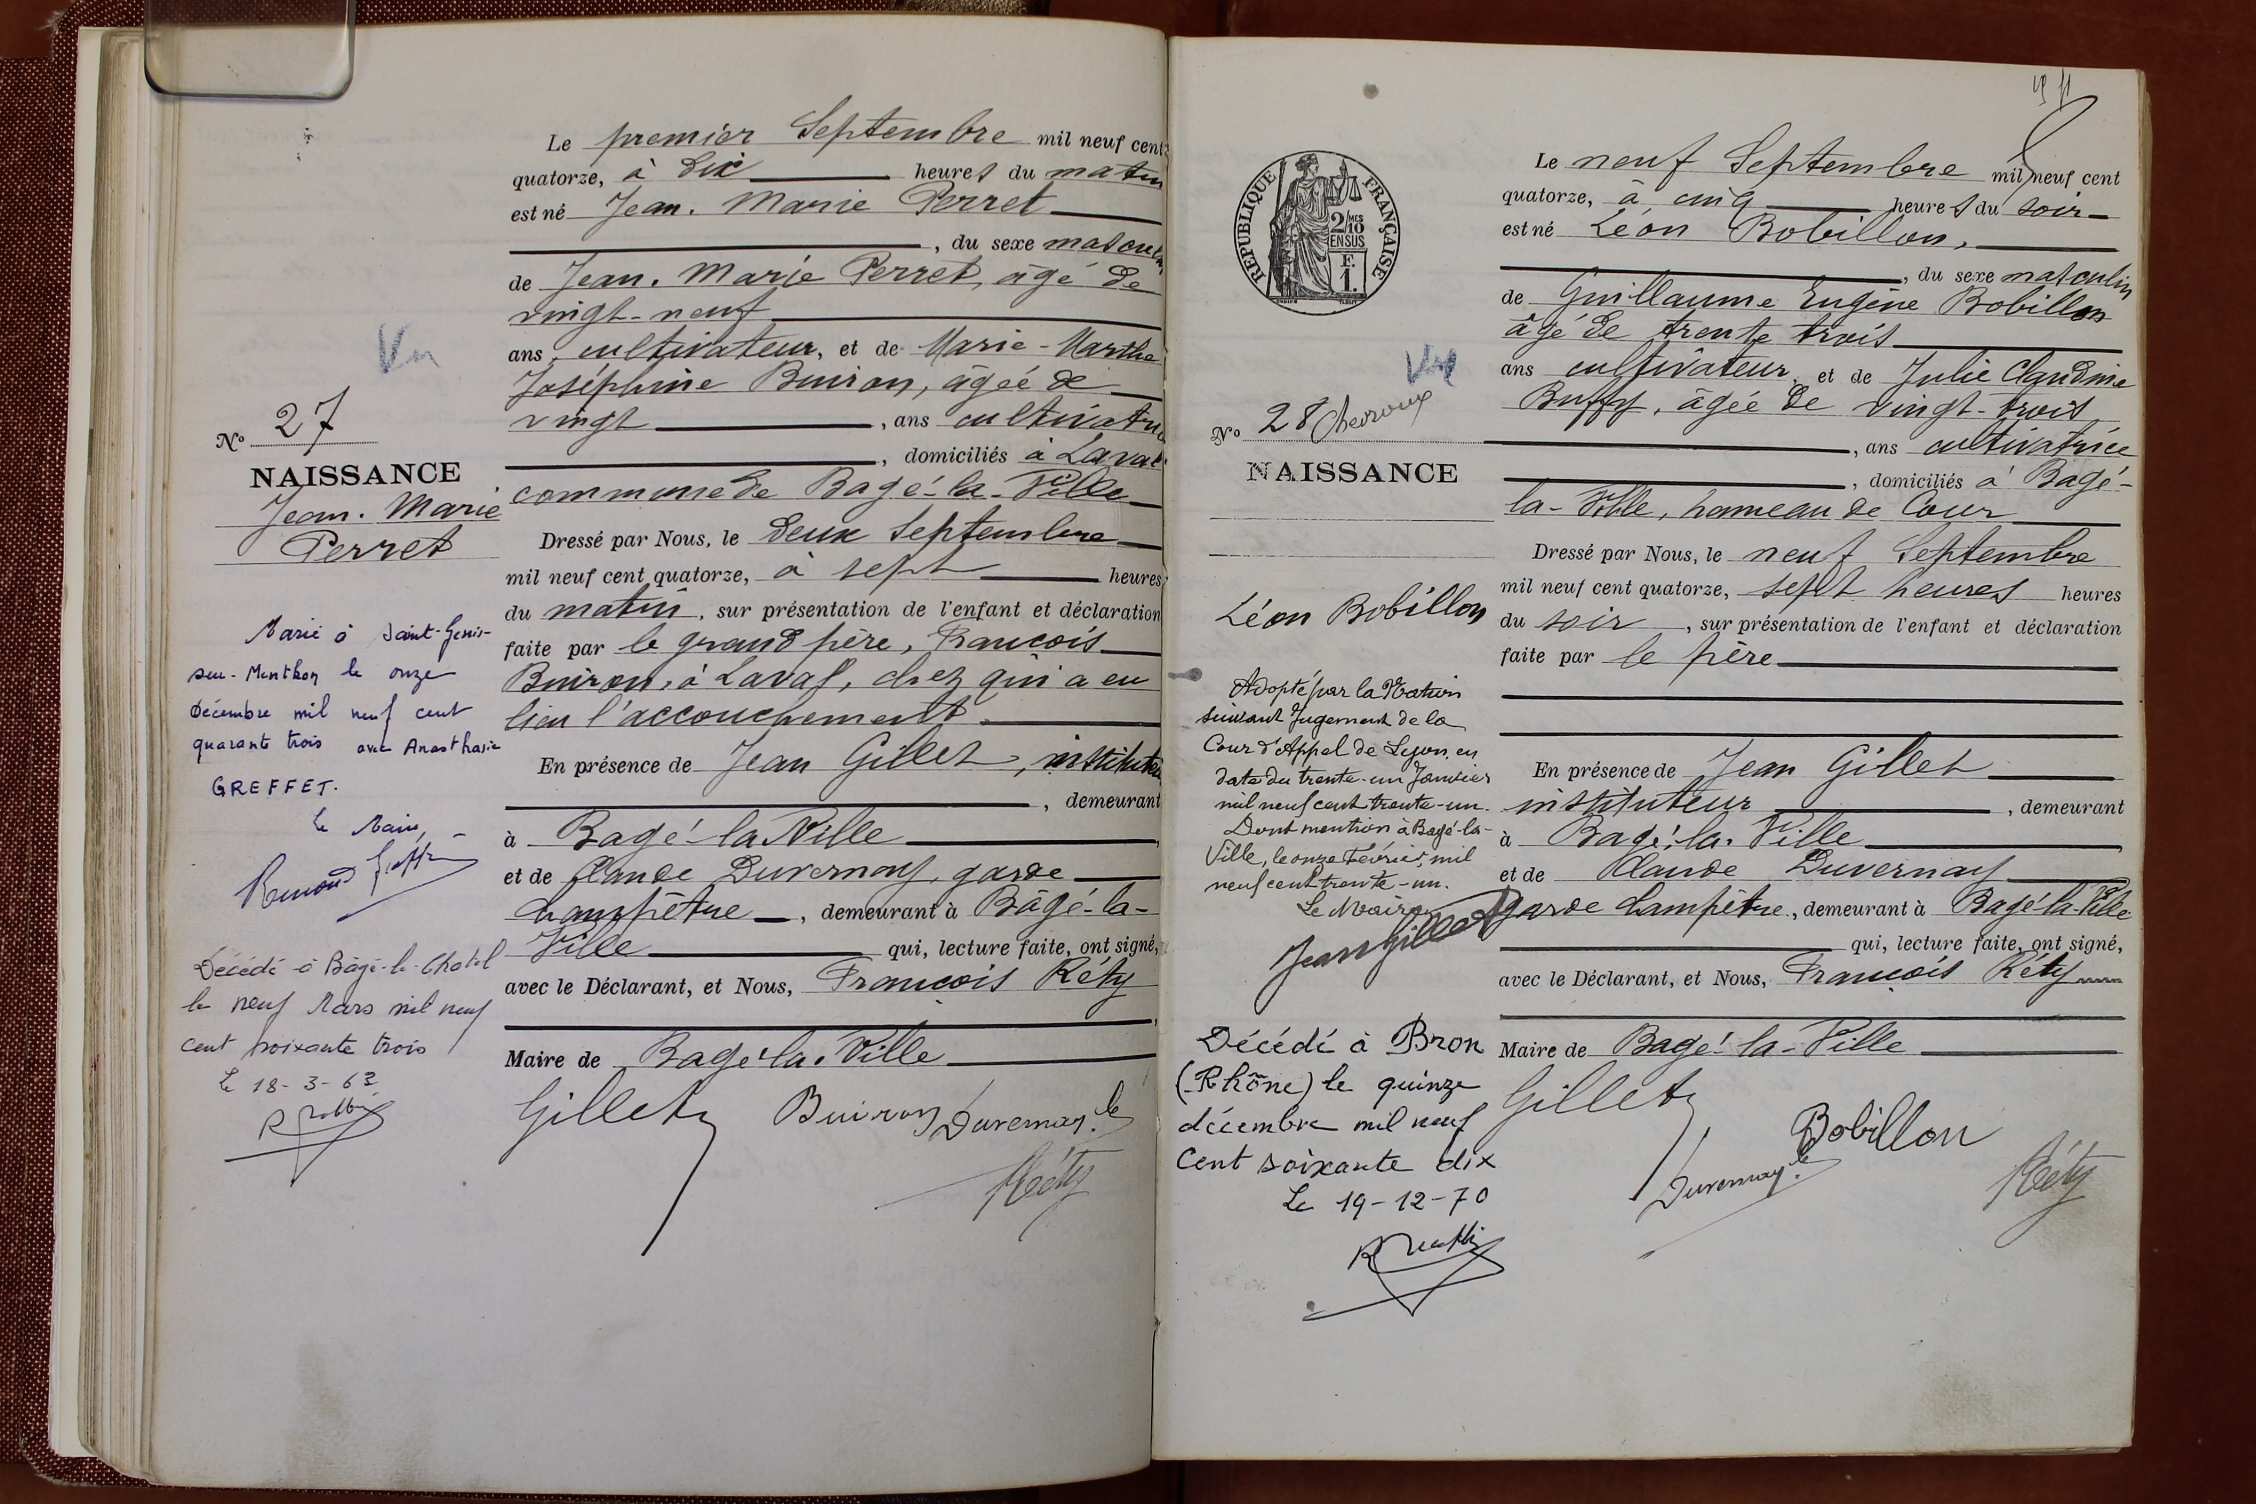 Le premier Septembre mil neuf cent
quatorze, à dix heures du matin
est né Jean. Marie Perret
, du sexe masculin
de Jean. Marie Perret, âgé de
vingt-neuf
ans, cultivateur, et de Marie-Marthe
Joséphine Buiron, âgée de
vingt, ans cultivatrice
, domiciliés à Laval
commune de Bagé-la-Ville
Dressé par Nous, le deux Septembre
mil neuf cent quatorze, à sept heures
du matin, sur présentation de l'enfant et déclaration
faite par le grand père, François
Buiron, à Laval, chez qui a eu
lieu l'accouchement.
En présence de Jean Gillet, instituteur
, demeurant
à Bagé-la Ville
et de Claude Duvernay, garde
champêtre, demeurant à Bâgé-la-
Ville qui, lecture faite, ont signé,
avec le Déclarant, et Nous, François Réty
Maire de Bagé-la-Ville
Gillet Buiron Duvernay. Cle
Réty
Vu
No 27
NAISSANCE
Jean. Marie
Perret
Marié à Saint-Genis-
sur-Menthon le onze
Décembre mil neuf cent
quarante trois avec Anasthasie
GREFFET.
Le Maire,
Décédé à Bâgé-le-Chatel
le neuf Mars mil neuf
cent soixante trois
Le 18-3-63
REPUBLIQUE FRANÇAISE
2/10 MES
EN SUS
F.
1.
Le neuf Septembre mil neuf cent
quatorze, à cinq heures du soir
est né Léon Bobillon,
, du sexe masculin
de Guillaume Eugène Bobillon
âgé de trente trois
ans cultivateur, et de Julie Claudine
Buffy, âgée de vingt-trois
, ans cultivatrice
, domiciliés à Bagé-
la-Ville, hameau de Cour
Dressé par Nous, le neuf Septembre
mil neuf cent quatorze, sept heures heures
du soir, sur présentation de l'enfant et déclaration
faite par le père
En présence de Jean Gillet
instituteur, demeurant
à Bagé-la-Ville
et de Claude Duvernay
garde champêtre, demeurant à Bagé-la-Ville
qui, lecture faite, ont signé,
avec le Déclarant, et Nous, François Réty
Maire de Bagé-la-Ville
Gillet
Bobillon
Duvernay. Cle
Réty
No 28 Chevroux
NAISSANCE
Léon Bobillon
Adopté par la Nation
suivant Jugement de la
Cour d'Appel de Lyon, en
date du trente-un Janvier
mil neuf cent trente-un.
Dont mention à Bagé-la-
Ville, le onze Février, mil
neuf cent trente-un.
Le Maire
Jean Gillet
Décédé à Bron
(Rhône) le quinze
décembre mil neuf
Cent soixante dix
Le 19-12-70